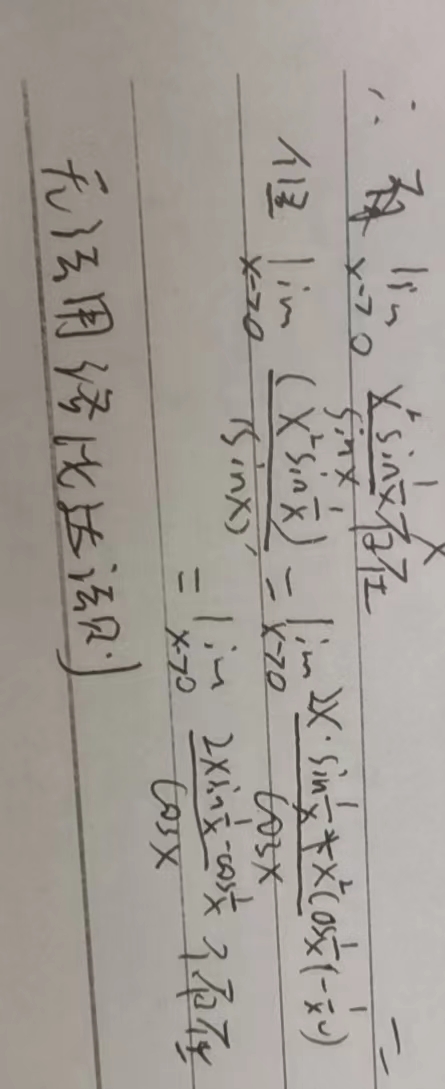 ∴ lim x→0 x² sin 1/x / sin x 存在
但 lim x→0 (x² sin 1/x)' / (sin x)' = lim x→0 2x·sin 1/x + x² cos 1/x (-1/x²) / cos x
= lim x→0 2x sin 1/x - cos 1/x / cos x 不存在
无法用洛必达法则